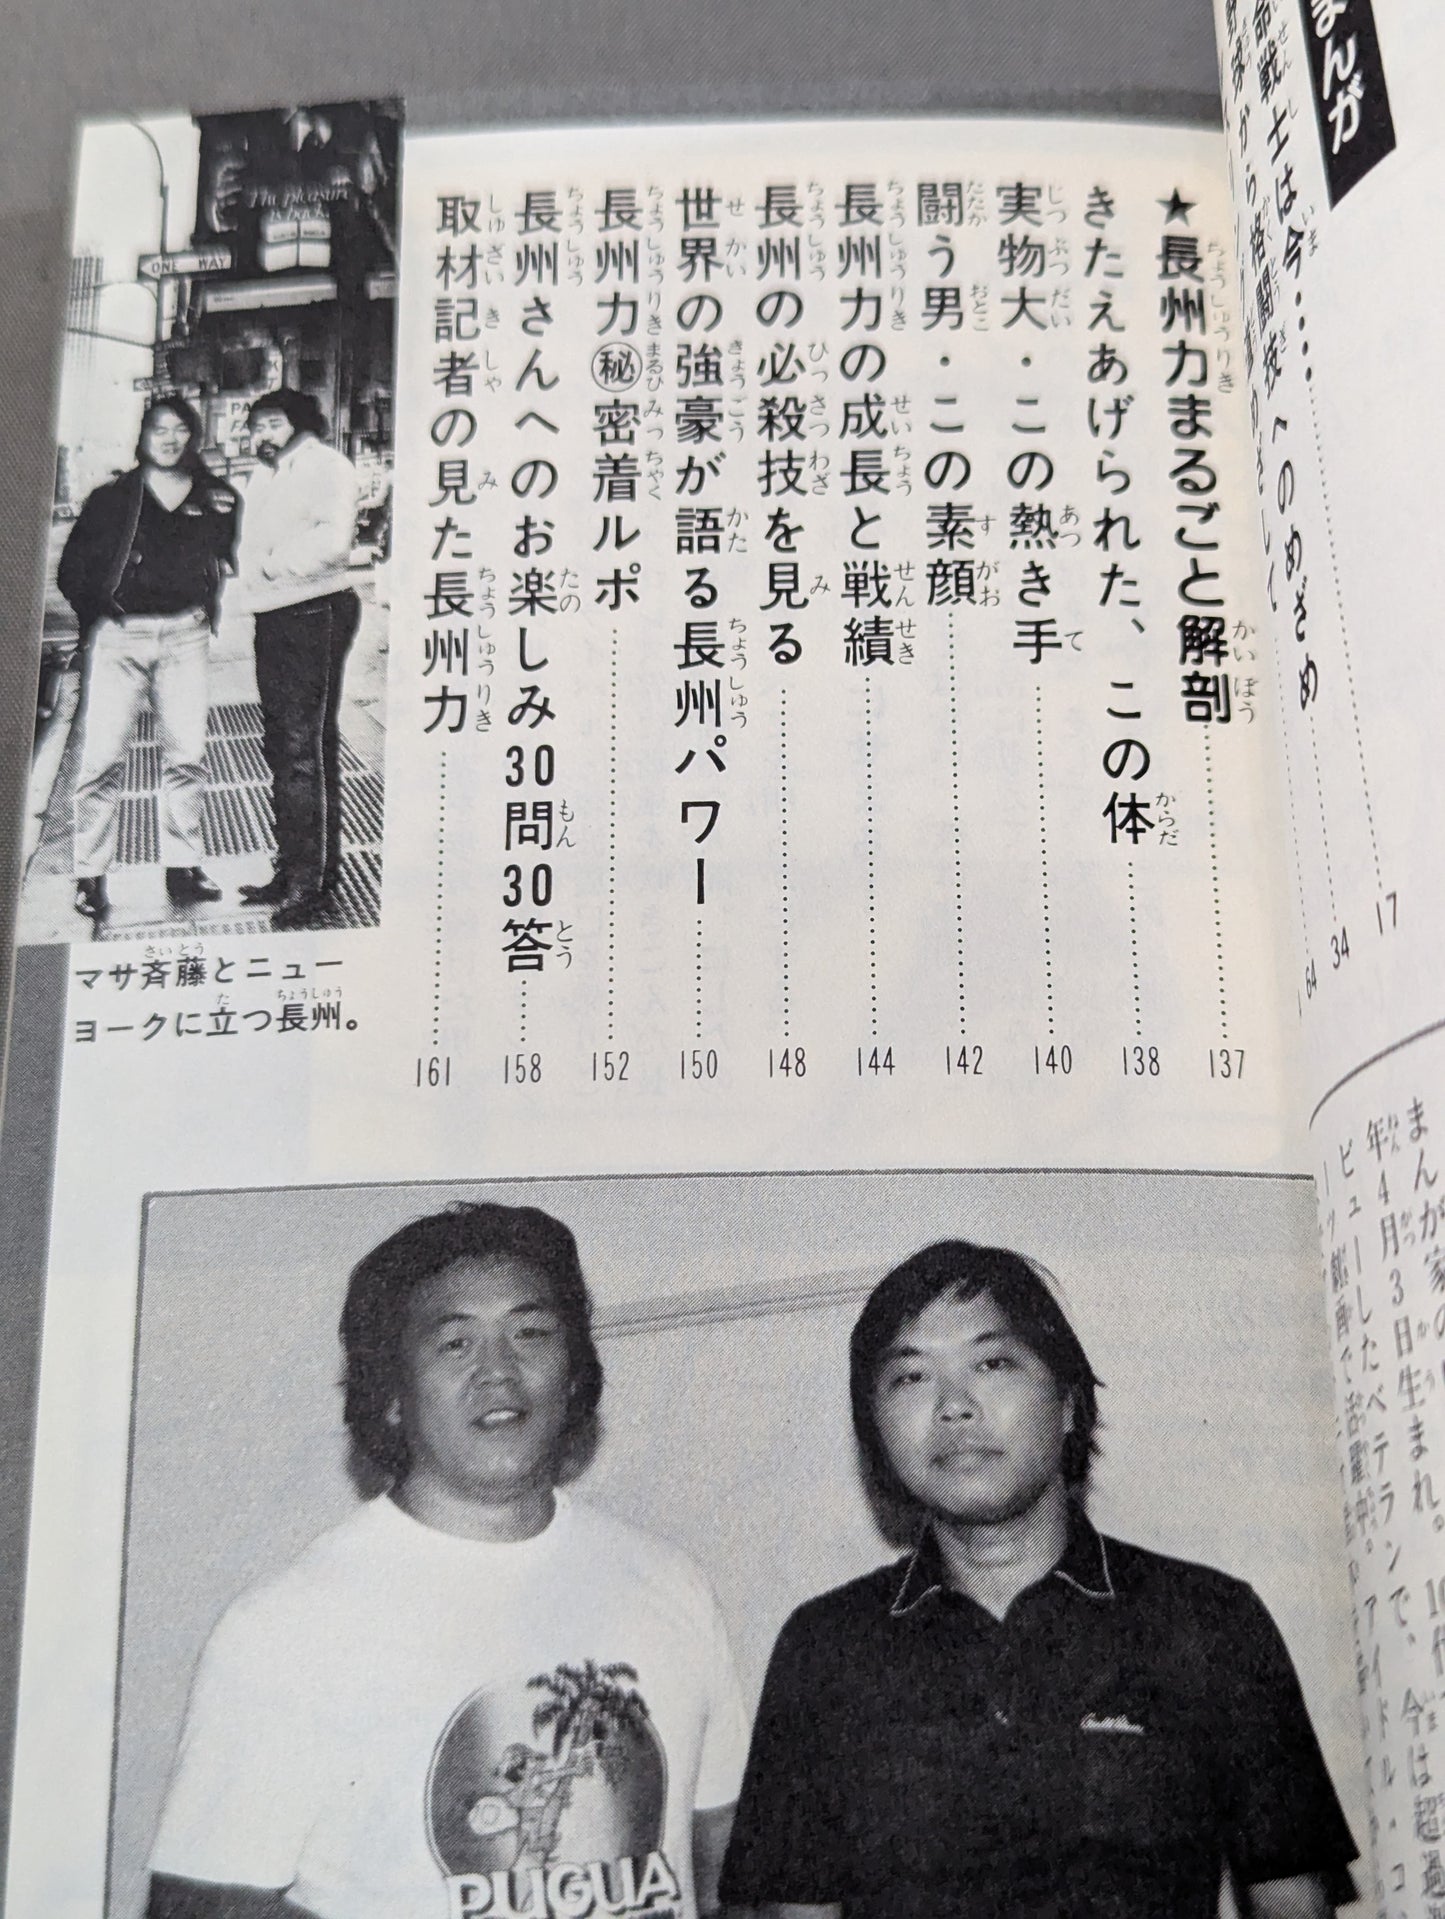 まんが
戦士は今……34
★長州力まるごと解剖……137
きたえあげられた、この体……138
実物大・この熱き手……140
闘う男・この素顔……142
長州力の成長と戦績……144
長州の必殺技を見る……148
世界の強豪が語る長州パワー……150
長州力㊙密着ルポ……152
長州さんへのお楽しみ30問30答……158
取材記者の見た長州力……161
17
64
マサ斉藤とニュー
ヨークに立つ長州。
The pleasure
is back.
ONE WAY
まんが家の
年4月3日生まれ。
ビューしたベテランで、今は超過
PUGUA